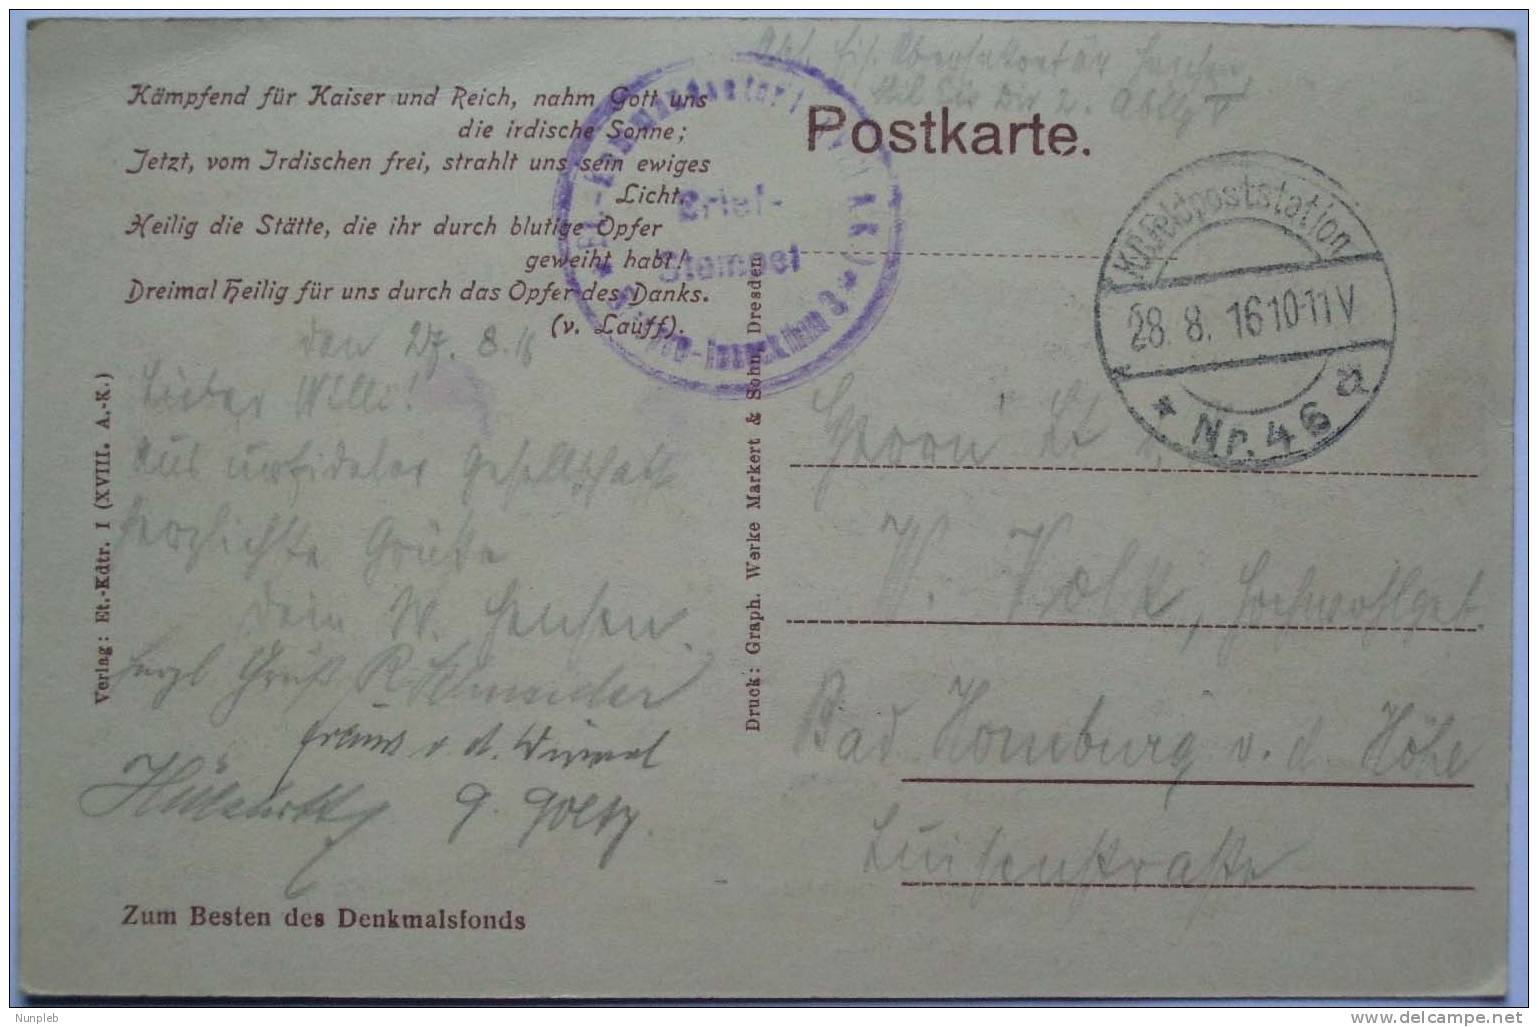 Kämpfend für Kaiser und Reich, nahm Gott uns
die irdische Sonne;
Jetzt, vom Irdischen frei, strahlt uns sein ewiges
Licht.
Heilig die Stätte, die ihr durch blutige Opfer
geweiht habt!
Dreimal Heilig für uns durch das Opfer des Danks.
(v. Lauff).
den 27. 8. 16
Lieber Willi!
Aus urfideler Gesellschaft
herzlichste Grüße
Dein W. Henschen
Herzl Gruß R. Schneider
G. Goltz.
Zum Besten des Denkmalsfonds
Verlag: Et.-Kdtr. I (XVIII. A.-K.)
Druck: Graph. Werke Markert & Sohn, Dresden
Brief-
Stempel
Abs.
Postkarte.
K.D.Feldpoststation
28. 8. 16 10-11 V
* Nr. 46 a
Herrn Lt
W. Volk, Hochwohlgeb.
Bad Homburg v. d. Höhe
Luisenstraße
Nunpleb
delcampe.net